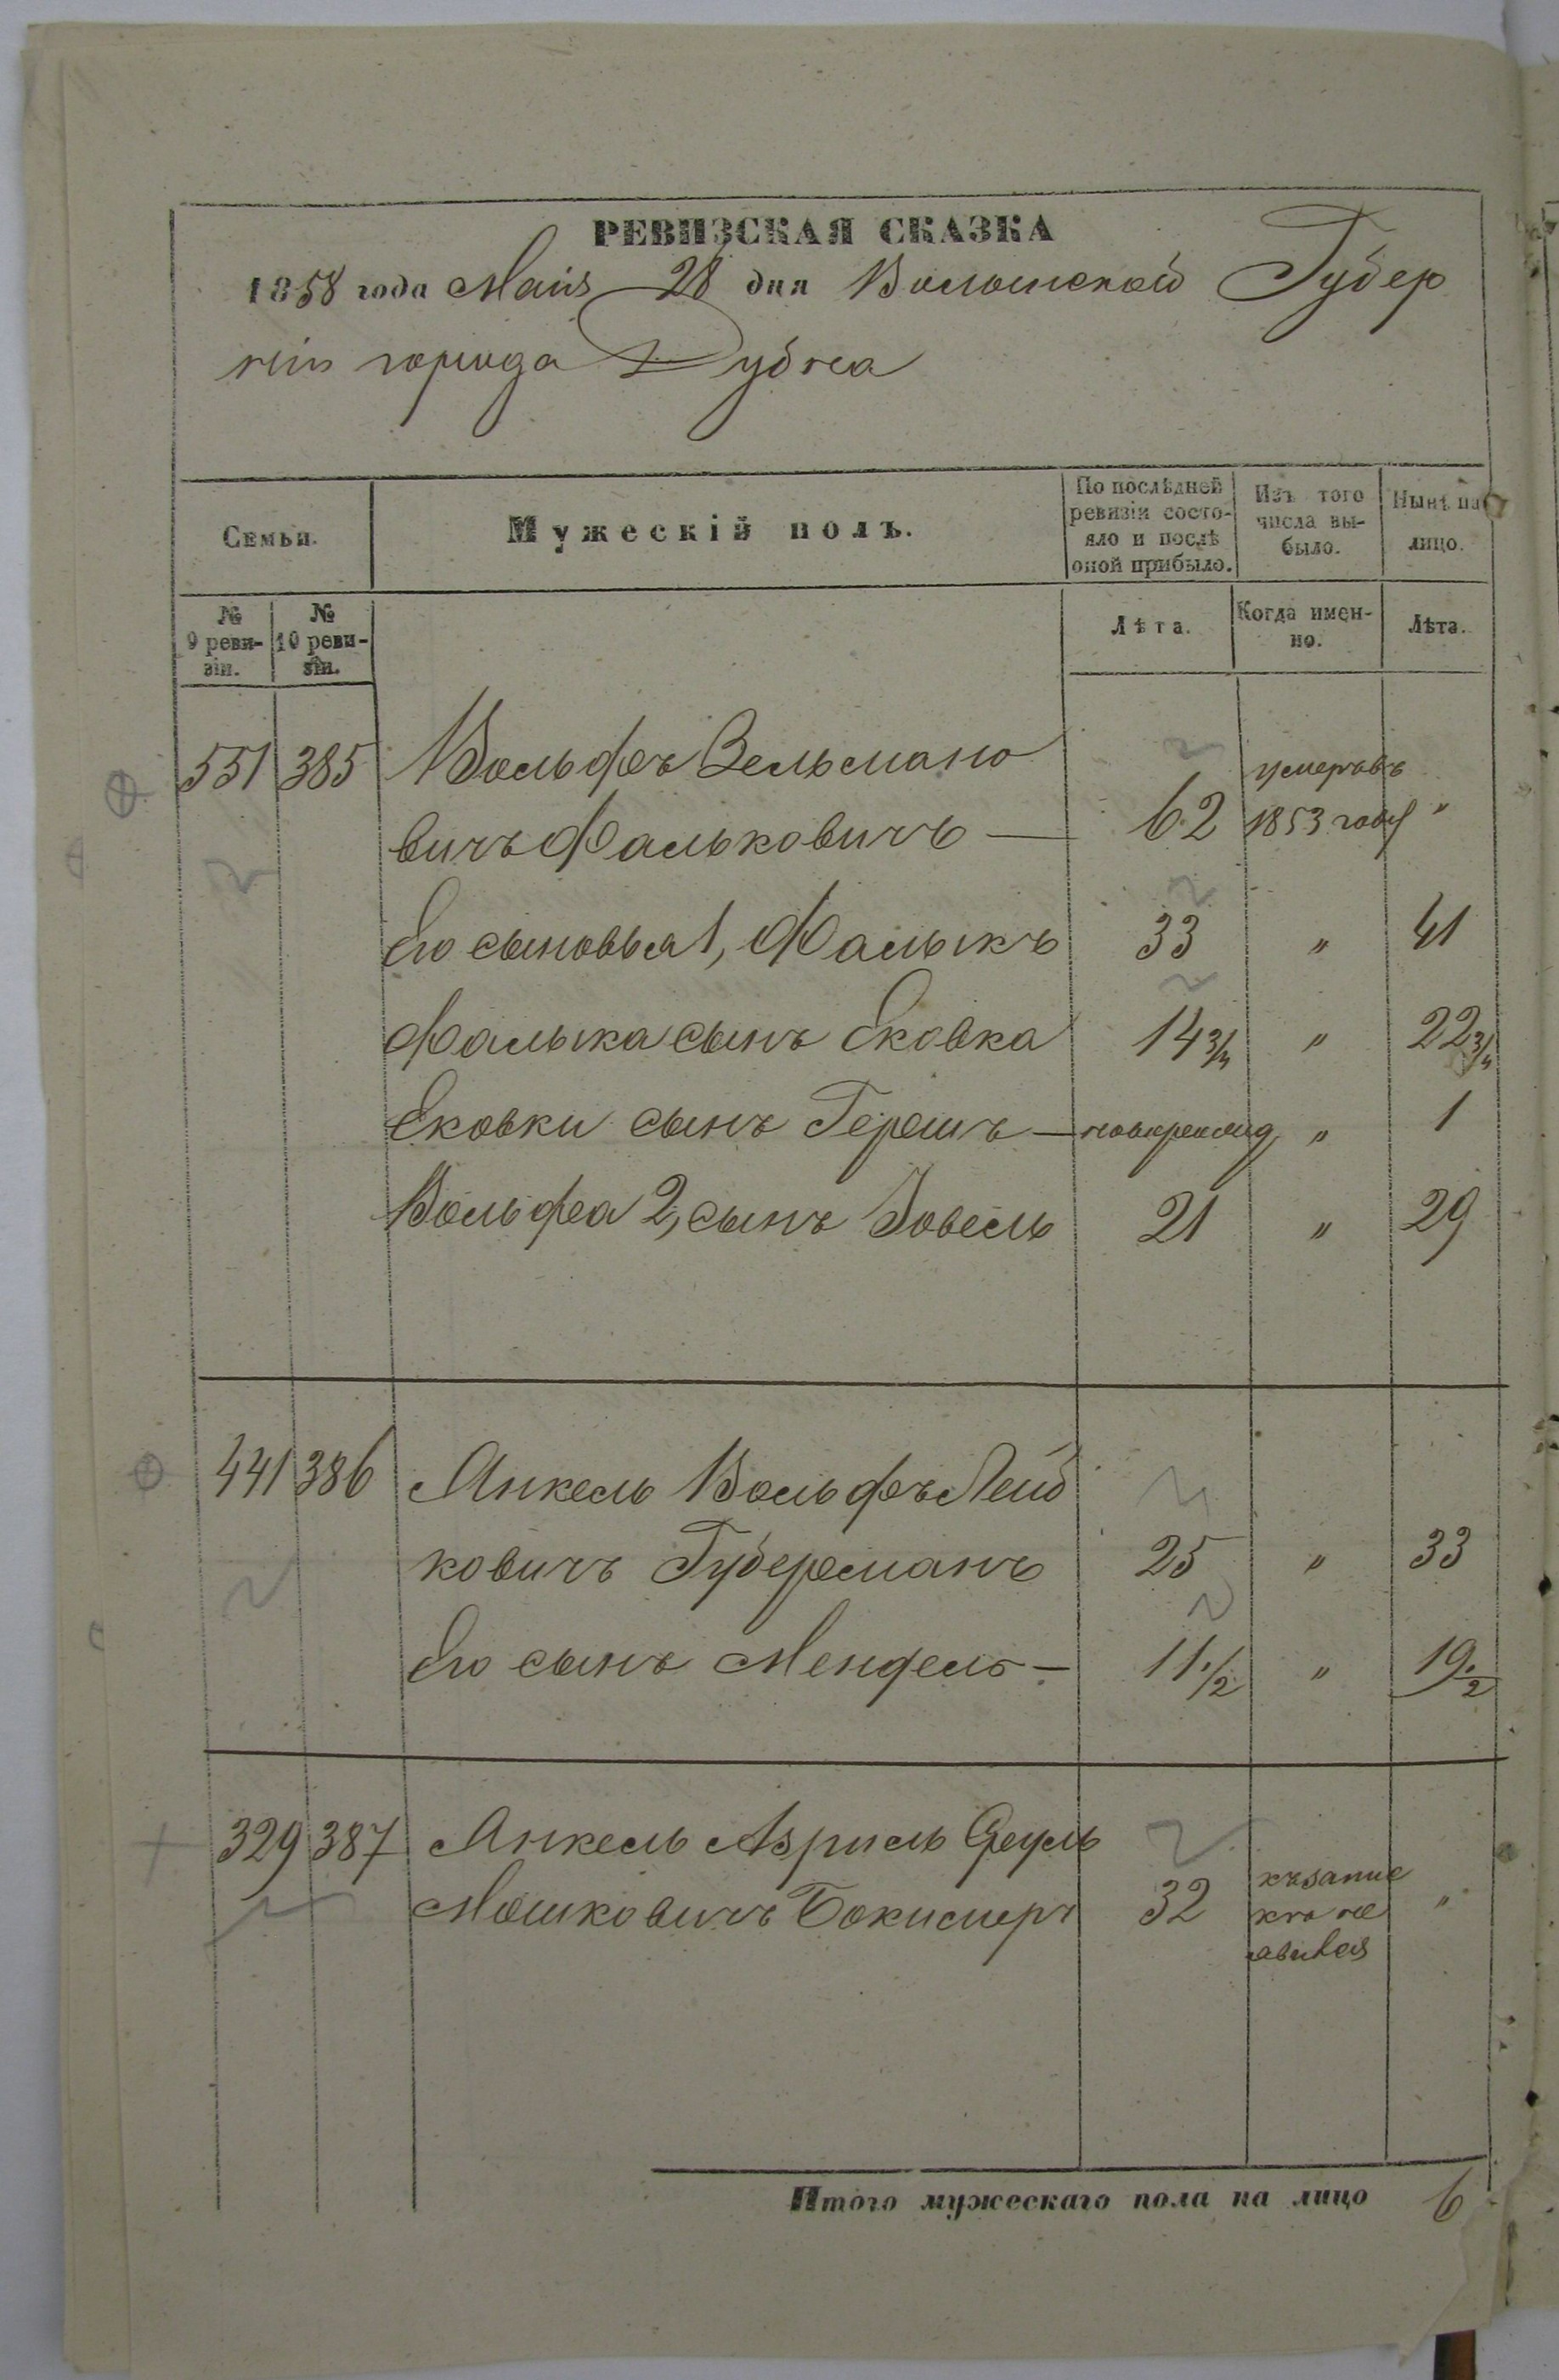 РЕВИЗСКАЯ СКАЗКА
1858 года Маія 28 дня Волынской Губер
ніи города Дубна
Семьи.
Мужескій полъ.
По послѣдней ревизіи состо-
яло и послѣ
оной прибыло.
Изъ того
числа вы-
было.
Нынѣ на
лицо.
№
9 реви-
зіи.
№
10 реви-
зіи.
Лѣта.
Когда имен-
но.
Лѣта.
551 385 Вольфъ Зельмано
вичъ Фальковичъ — 62 умеръ въ
1853 году "
Его сыновья 1, Фалыкъ 33 " 41
Фалыка сынъ Ековка 14 3/4 " 22 3/4
Ековки сынъ Гершъ — " 1
Вольфа 2, сынъ Іовель 21 " 29
441 386 Янкель Вольфъ Лей
ковичъ Губерманъ 25 " 33
Его сынъ Мендель — 11 1/2 " 19 1/2
329 387 Янкель Азриль
Мошковичъ 32 къ запис
кѣ не
явился "
Итого мужескаго пола на лицо 6